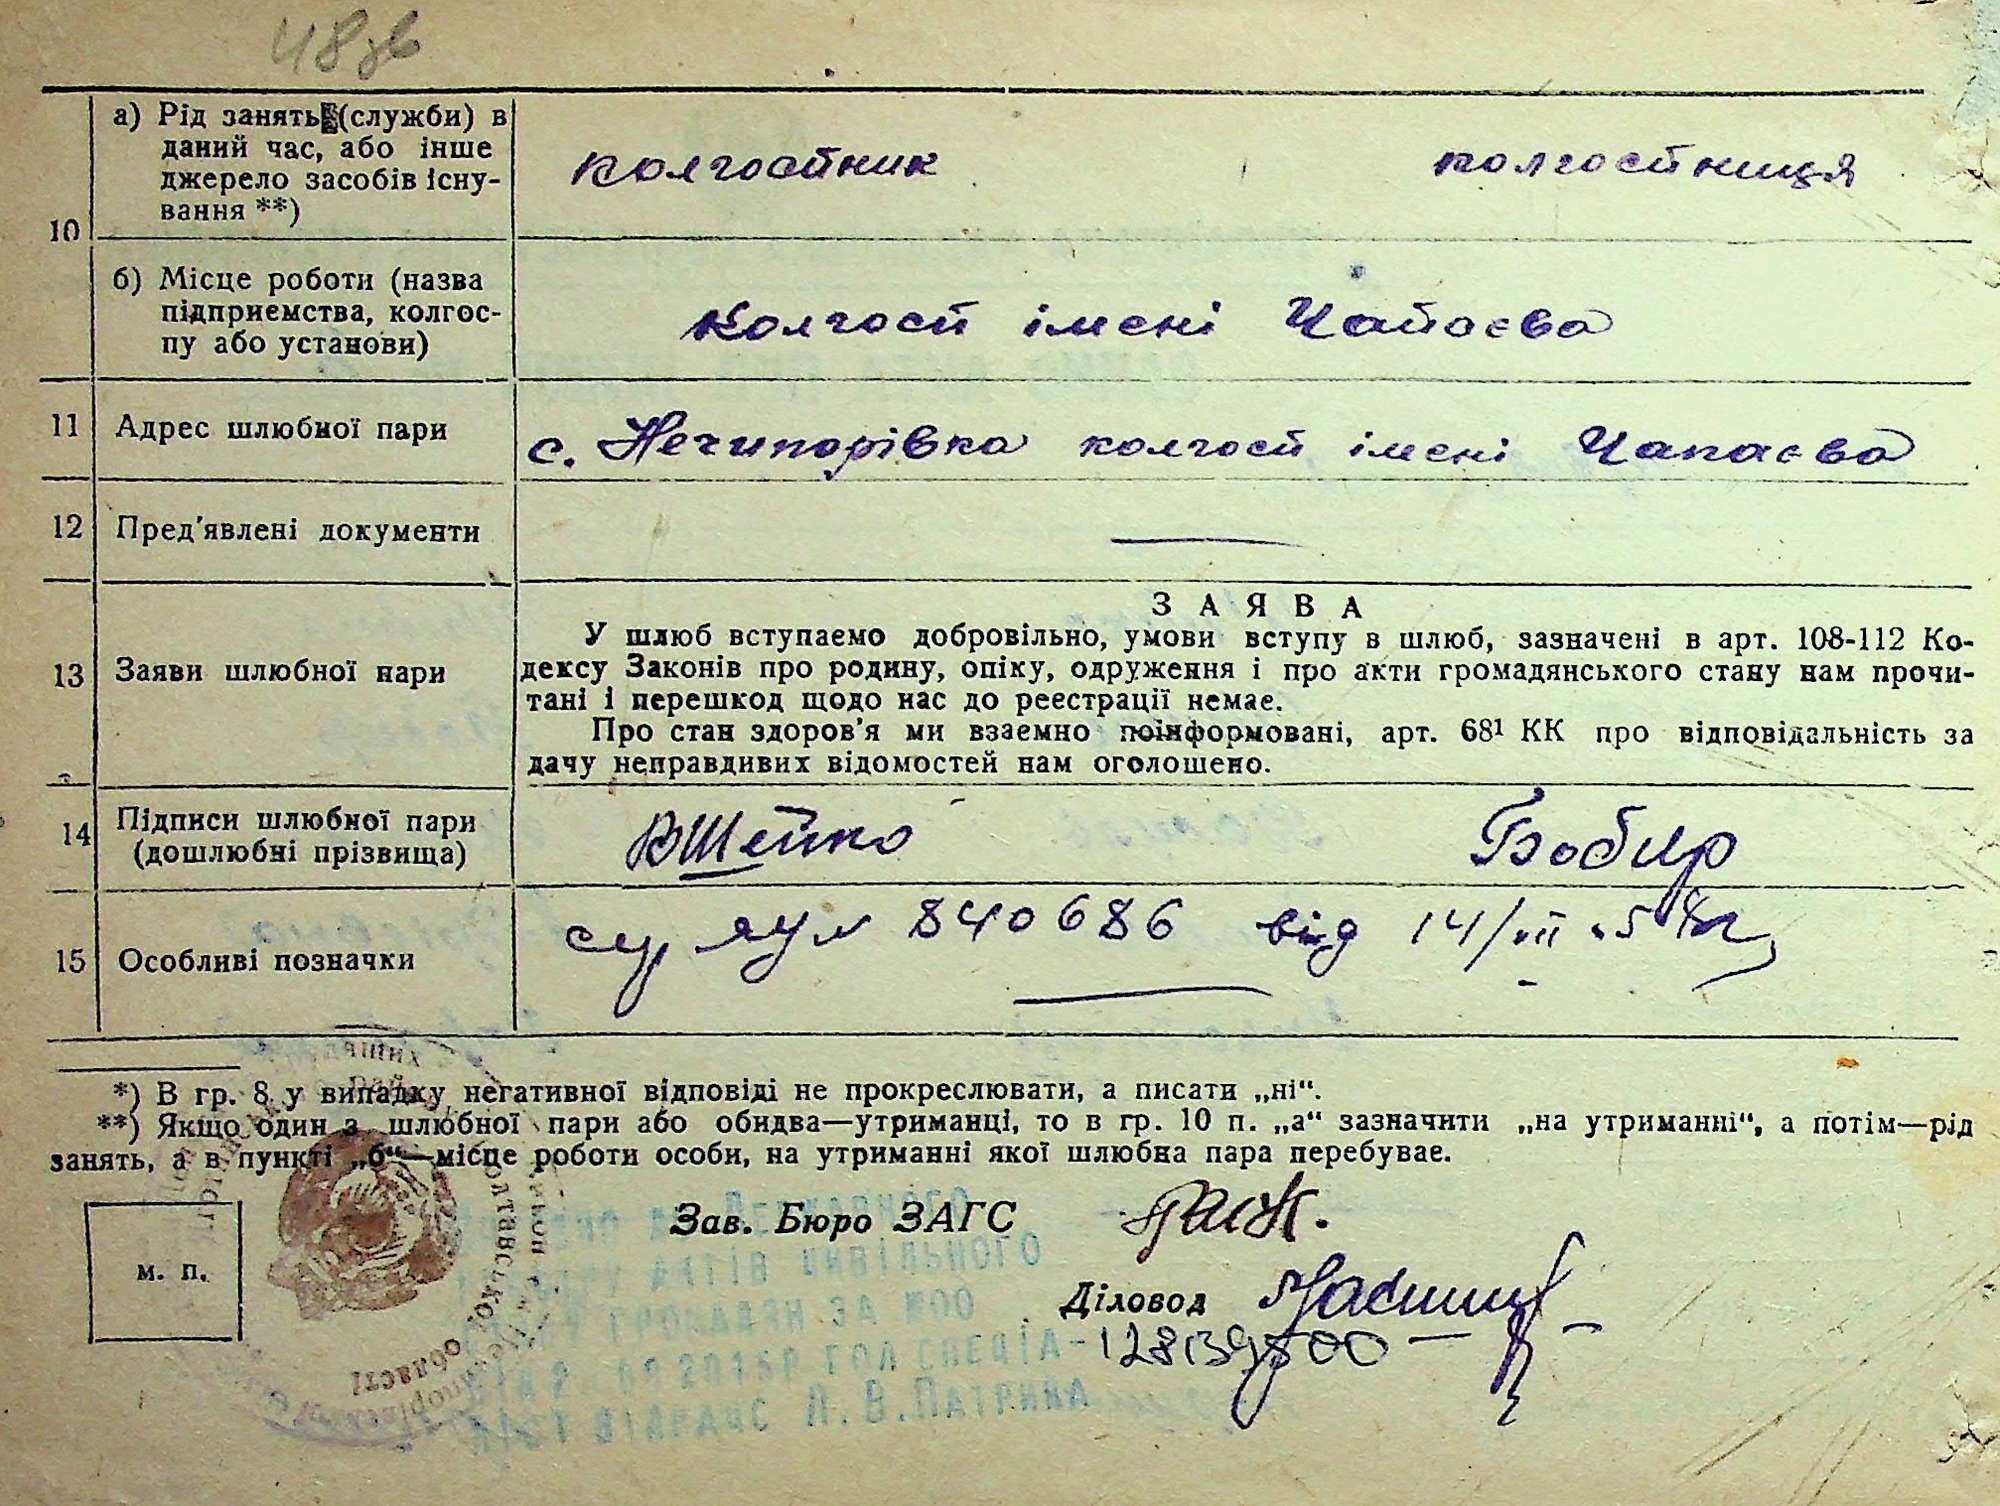 48 зв
10
а) Рід занять (служби) в
даний час, або інше
джерело засобів існу-
вання **)
колгоспник колгоспниця
б) Місце роботи (назва
підприємства, колгос-
пу або установи)
Колгосп імені Чапаєва
11 Адрес шлюбної пари
с. Нечипорівка колгосп імені Чапаєва
12 Пред'явлені документи —
13 Заяви шлюбної пари
ЗАЯВА
У шлюб вступаємо добровільно, умови вступу в шлюб, зазначені в арт. 108-112 Ко-
дексу Законів про родину, опіку, одруження і про акти громадянського стану нам прочи-
тані і перешкод щодо нас до реєстрації немає.
Про стан здоров'я ми взаємно поінформовані, арт. 68¹ КК про відповідальність за
дачу неправдивих відомостей нам оголошено.
14 Підписи шлюбної пари
(дошлюбні прізвища)
ВШейко Бобир
15 Особливі позначки
840686 від 14/
*) В гр. 8 у випадку негативної відповіді не прокреслювати, а писати „ні“.
**) Якщо один з шлюбної пари або обидва—утриманці, то в гр. 10 п. „а“ зазначити „на утриманні“, а потім—рід
занять, а в пункті „б“—місце роботи особи, на утриманні якої шлюбна пара перебуває.
м. п.
Зав. Бюро ЗАГС
Діловод
Державного
актів цивільного
громадян за №00
2015р гол спеціа-
ліст відрацс Л.В. Патрика
Полтавської
області